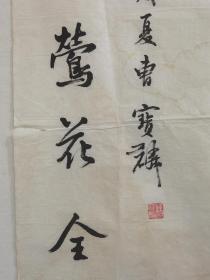 夏曹寶麟
鶯花全